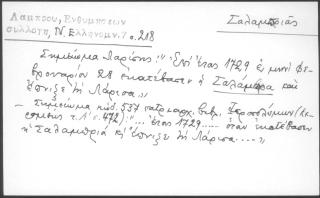 Λάμπρου, Ἐνθυμήσεων
συλλογή, Ν. Ἑλληνομν. 7 σ. 218
Σαλαμπριᾶς
Σημείωμα Λαρίσης: "Ἐπὶ ἔτος 1729 ἐν μηνὶ Φε-
βρουαρίου 28 ἐκατέβασεν ἡ Σαλάμβρα καὶ
ἔπνιξε τὴ Λάρισα „
Σημείωμα κωδ. 537 πατριαρχ. βιβλ. Ἱεροσολύμων (Κε-
ραμεως τ. σ. 472): "... ἔτος 1729..... ὅταν ἐκατέβασεν
ἡ Σαλαμπριὰ κὶ ἔπνιξε τὴ Λάρισα.... „